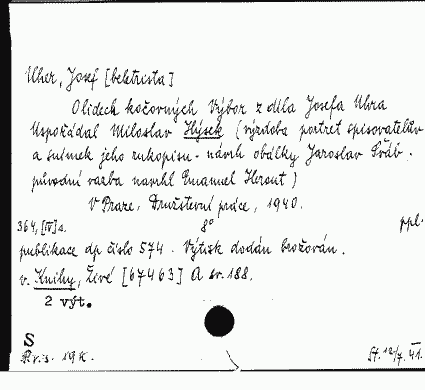 Uher, Josef [beletrista]
O lidech kočovných Výbor z díla Josefa Uhra
Uspořádal Miloslav Hýsek (výzdoba portrét spisovatelův
a snímek jeho rukopisu - návrh obálky Jaroslav Šváb.
původní vazba navrhl Emanuel Hercut)
V Praze, Družstevní práce, 1940.
364, [IV] s. 8° ppl.
publikace dp číslo 574. Výtisk dodán brožován.
v. Knihy, Živé [67463] A sv. 188.
2 výt.
S
Rv. s. 19 K. St. 12/7. 41.